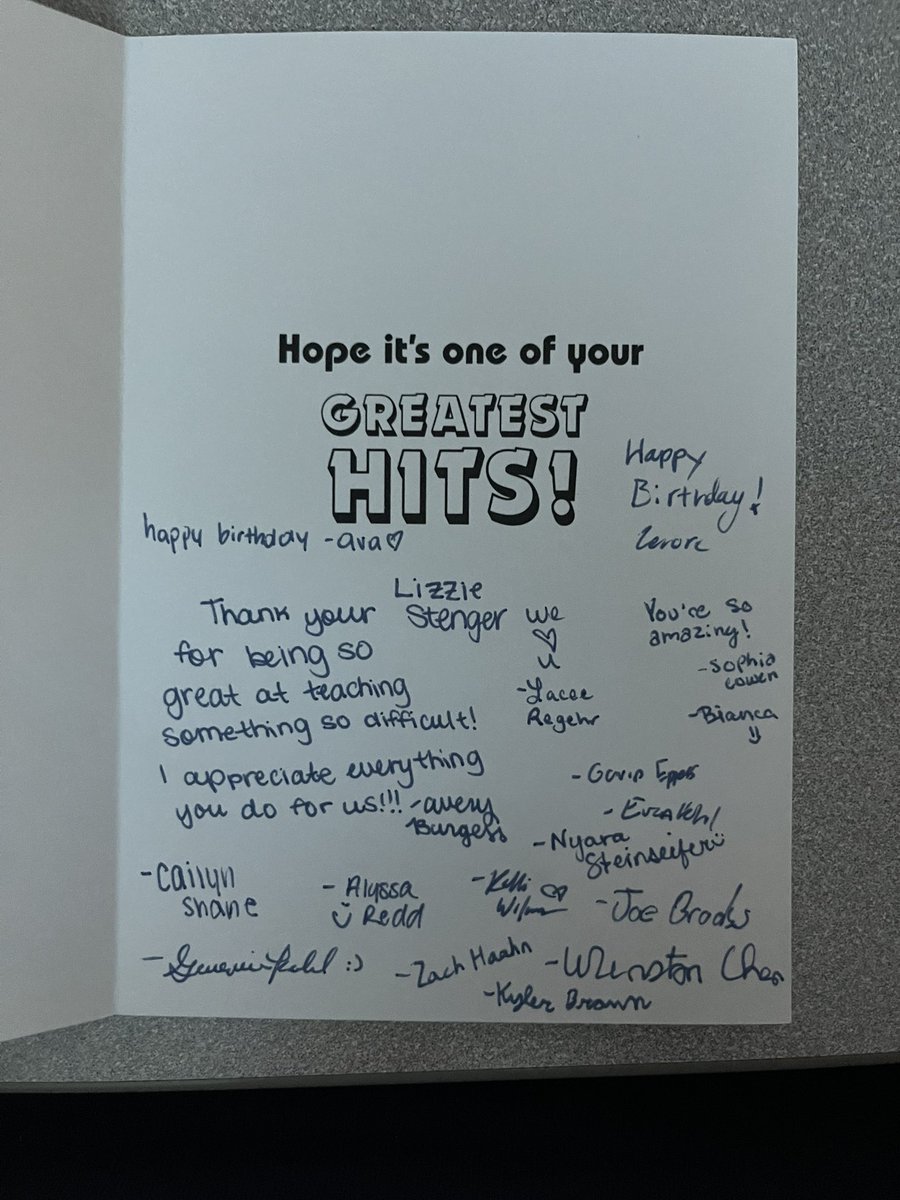 Hope it's one of your
GREATEST
HITS!
Happy
Birthday!
happy birthday -ava♡
Lizzie
Stenger
Thank your
for being so
great at teaching
something so difficult!
I appreciate everything
you do for us!!! -avery
Burgess
we
♡
u
-Lacee
Regehr
You're so
amazing!
-Sophia
Cowen
-Bianca
-Gavin Epps
-Nyara
Steinseifer
-Cailyn
Shane
-Alyssa
Redd
-Kelli
-Joe Brooks
:)
-Zach Haahn
-Winston Chen
-Kyler Brown